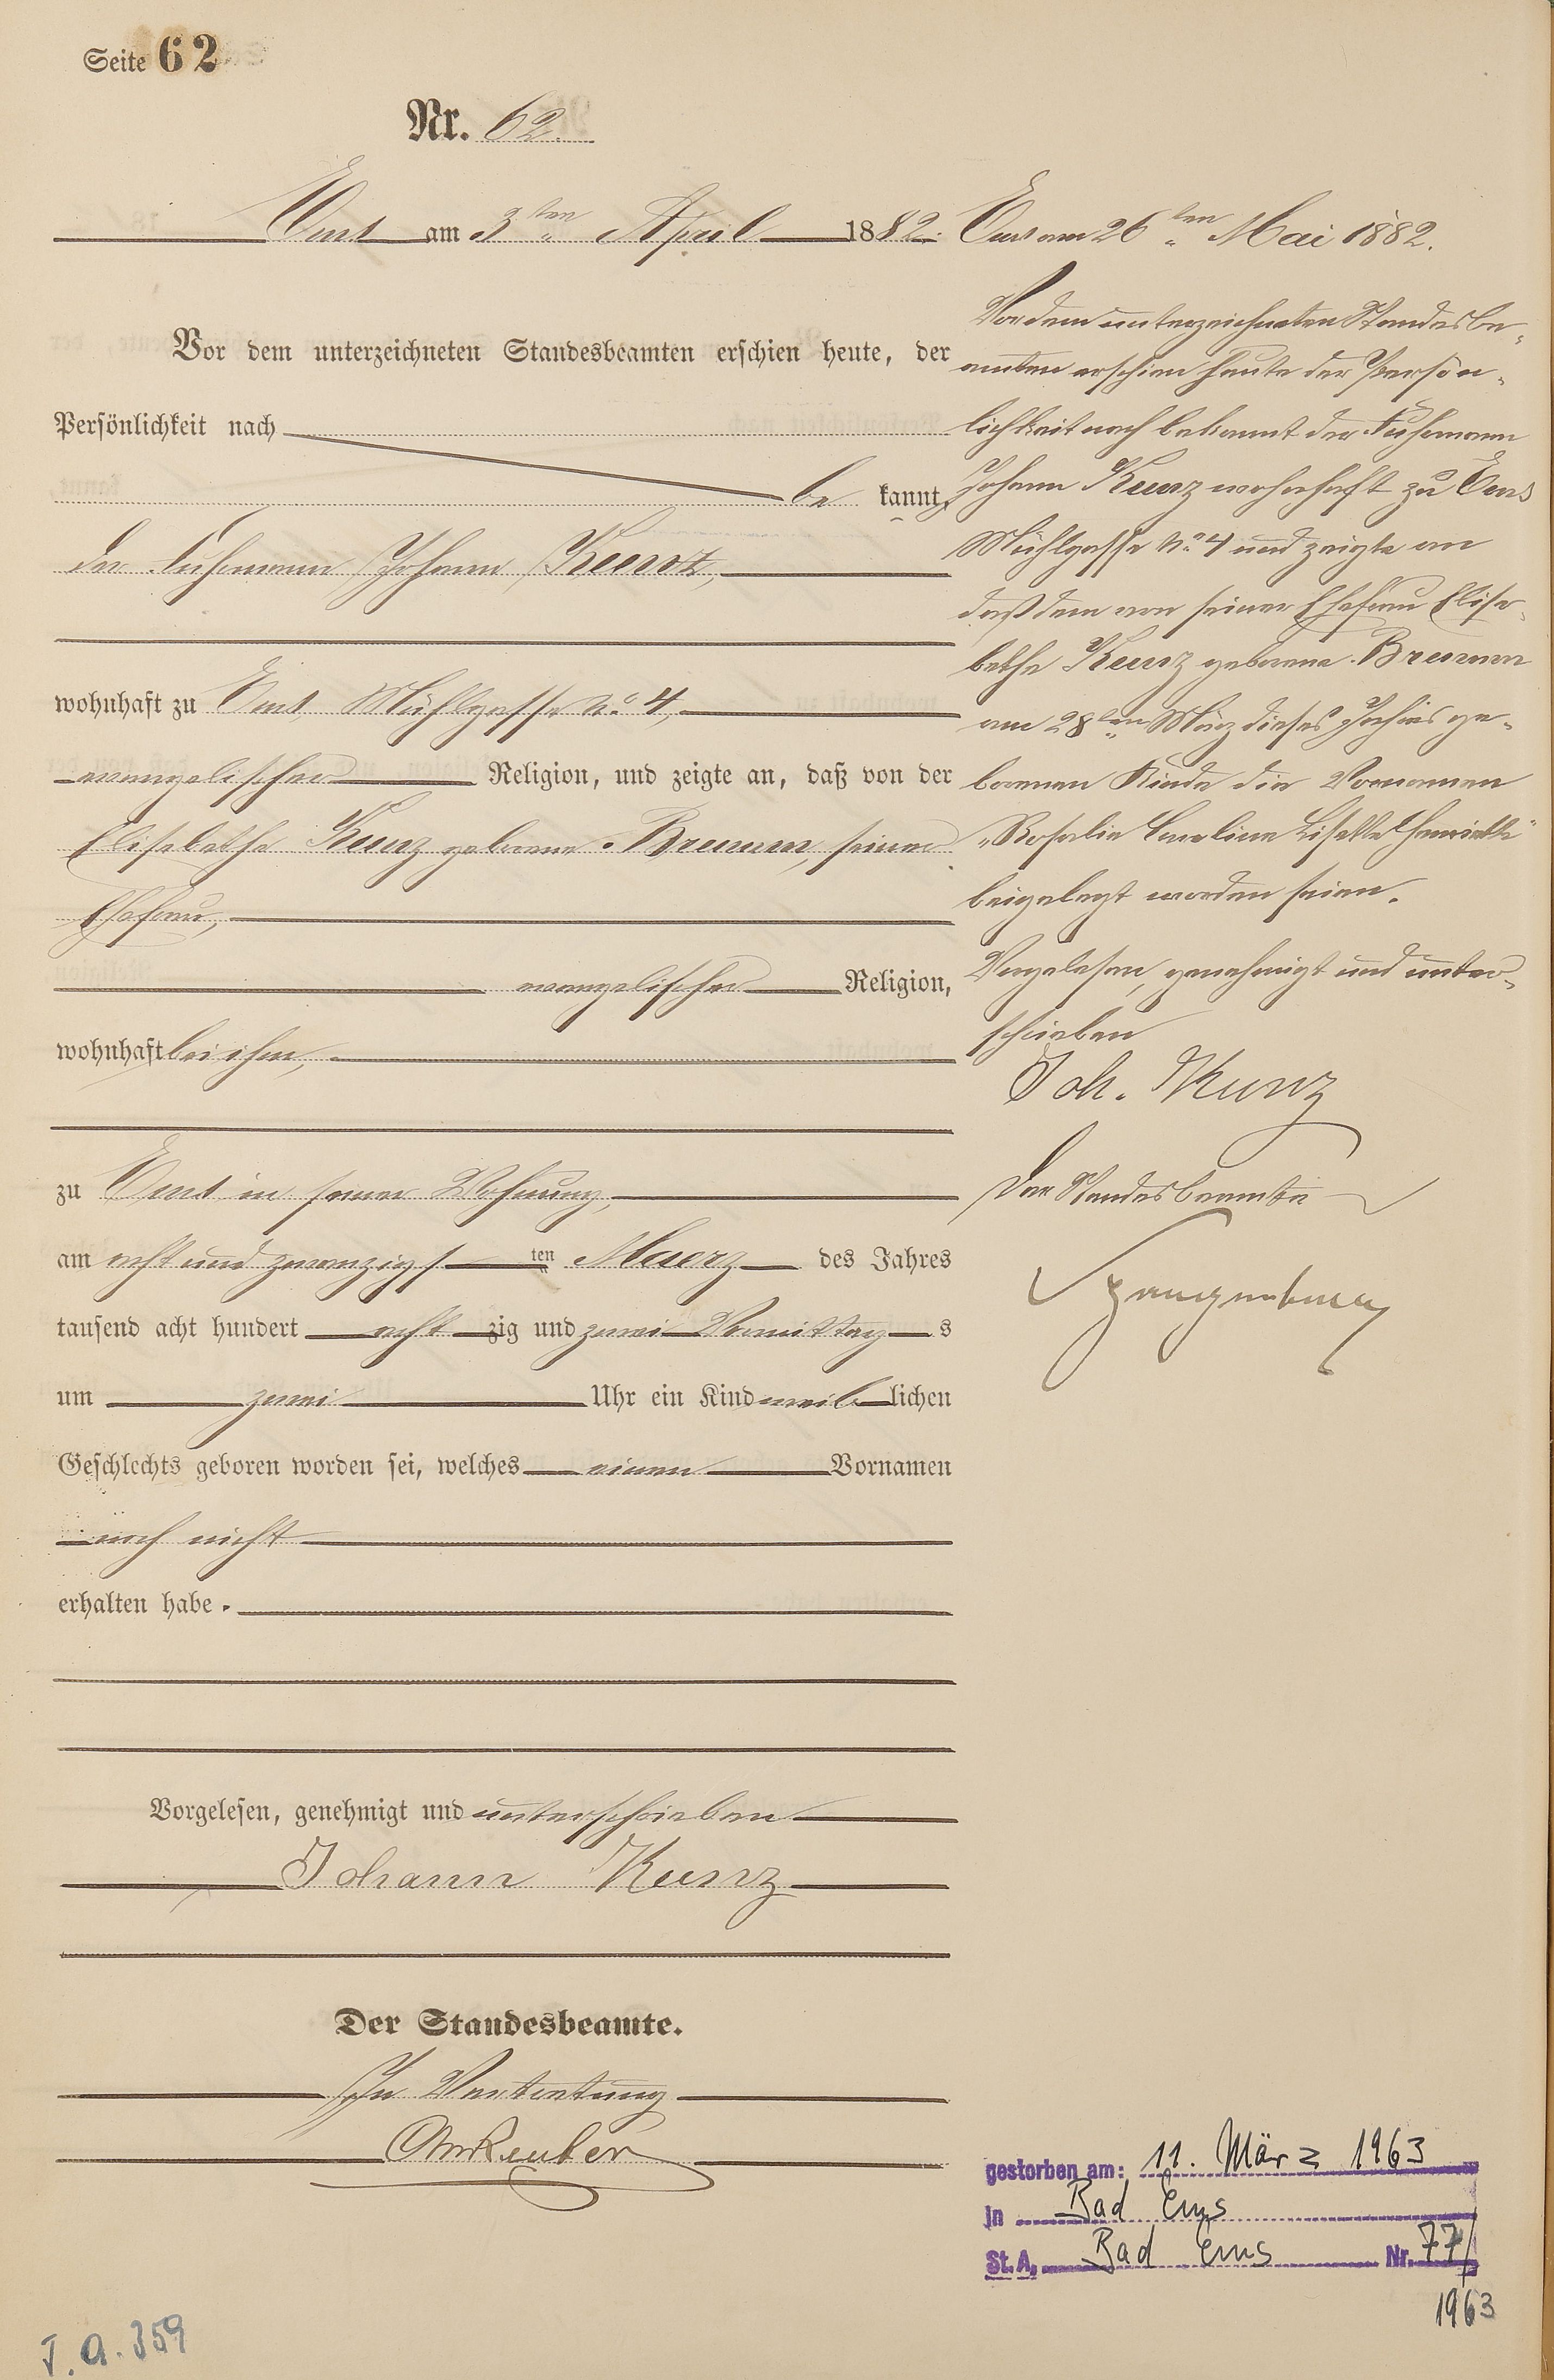 Seite 62
Nr. 62.
Ems am 3ten April 1882.
Vor dem unterzeichneten Standesbeamten erschien heute, der
Persönlichkeit nach
be kannt,
der Fuhrmann Johann Kunz,
wohnhaft zu Ems Mühlgasse No. 4,
evangelischer Religion, und zeigte an, daß von der
Elisabethe Kunz geborene Brumm, seiner
Ehefrau,
evangelischer Religion,
wohnhaft bei ihm,
zu Ems in seiner Wohnung,
am acht und zwanzigsten Maerz des Jahres
tausend acht hundert acht zig und zwei Vormittags
um zwei Uhr ein Kind weiblichen
Geschlechts geboren worden sei, welches einen Vornamen
noch nicht
erhalten habe.
Vorgelesen, genehmigt und unterschrieben
Johann Kunz
Der Standesbeamte.
In Vertretung
Ems am 26ten Mai 1882.
Vor dem unterzeichneten Standesbe-
amten erschien heute der Persön-
lichkeit nach bekannt der Fuhrmann
Johann Kunz wohnhaft zu Ems
Mühlgasse No. 4 und zeigte an
daß dem von seiner Ehefrau Elisa-
bethe Kunz geborene Brumm
am 28ten März dieses Jahres ge-
borenen Kinde die Vornamen
„Rosalie Caroline Lisette Henriette"
beigelegt worden seien.
Vorgelesen, genehmigt und unter-
schrieben
Joh. Kunz
Der Standesbeamte
Spangenberg
gestorben am: 11. März 1963
in Bad Ems
St. A. Bad Ems Nr. 77/
1963
I. a. 359